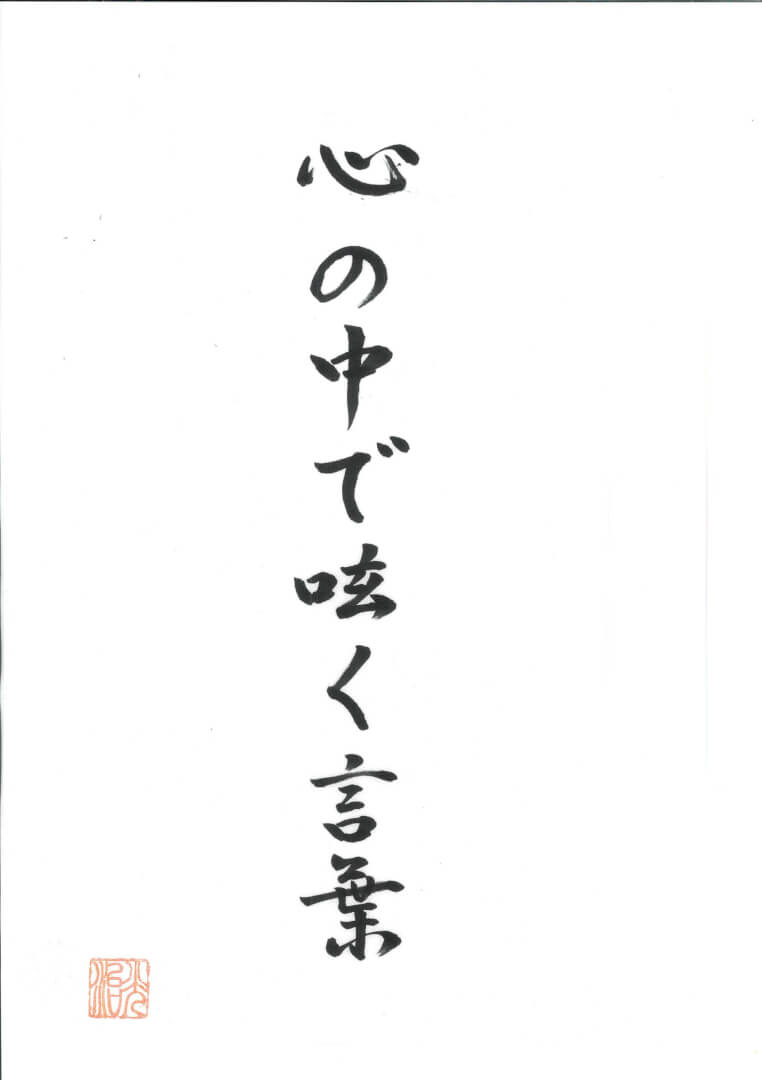 心の中で呟く言葉